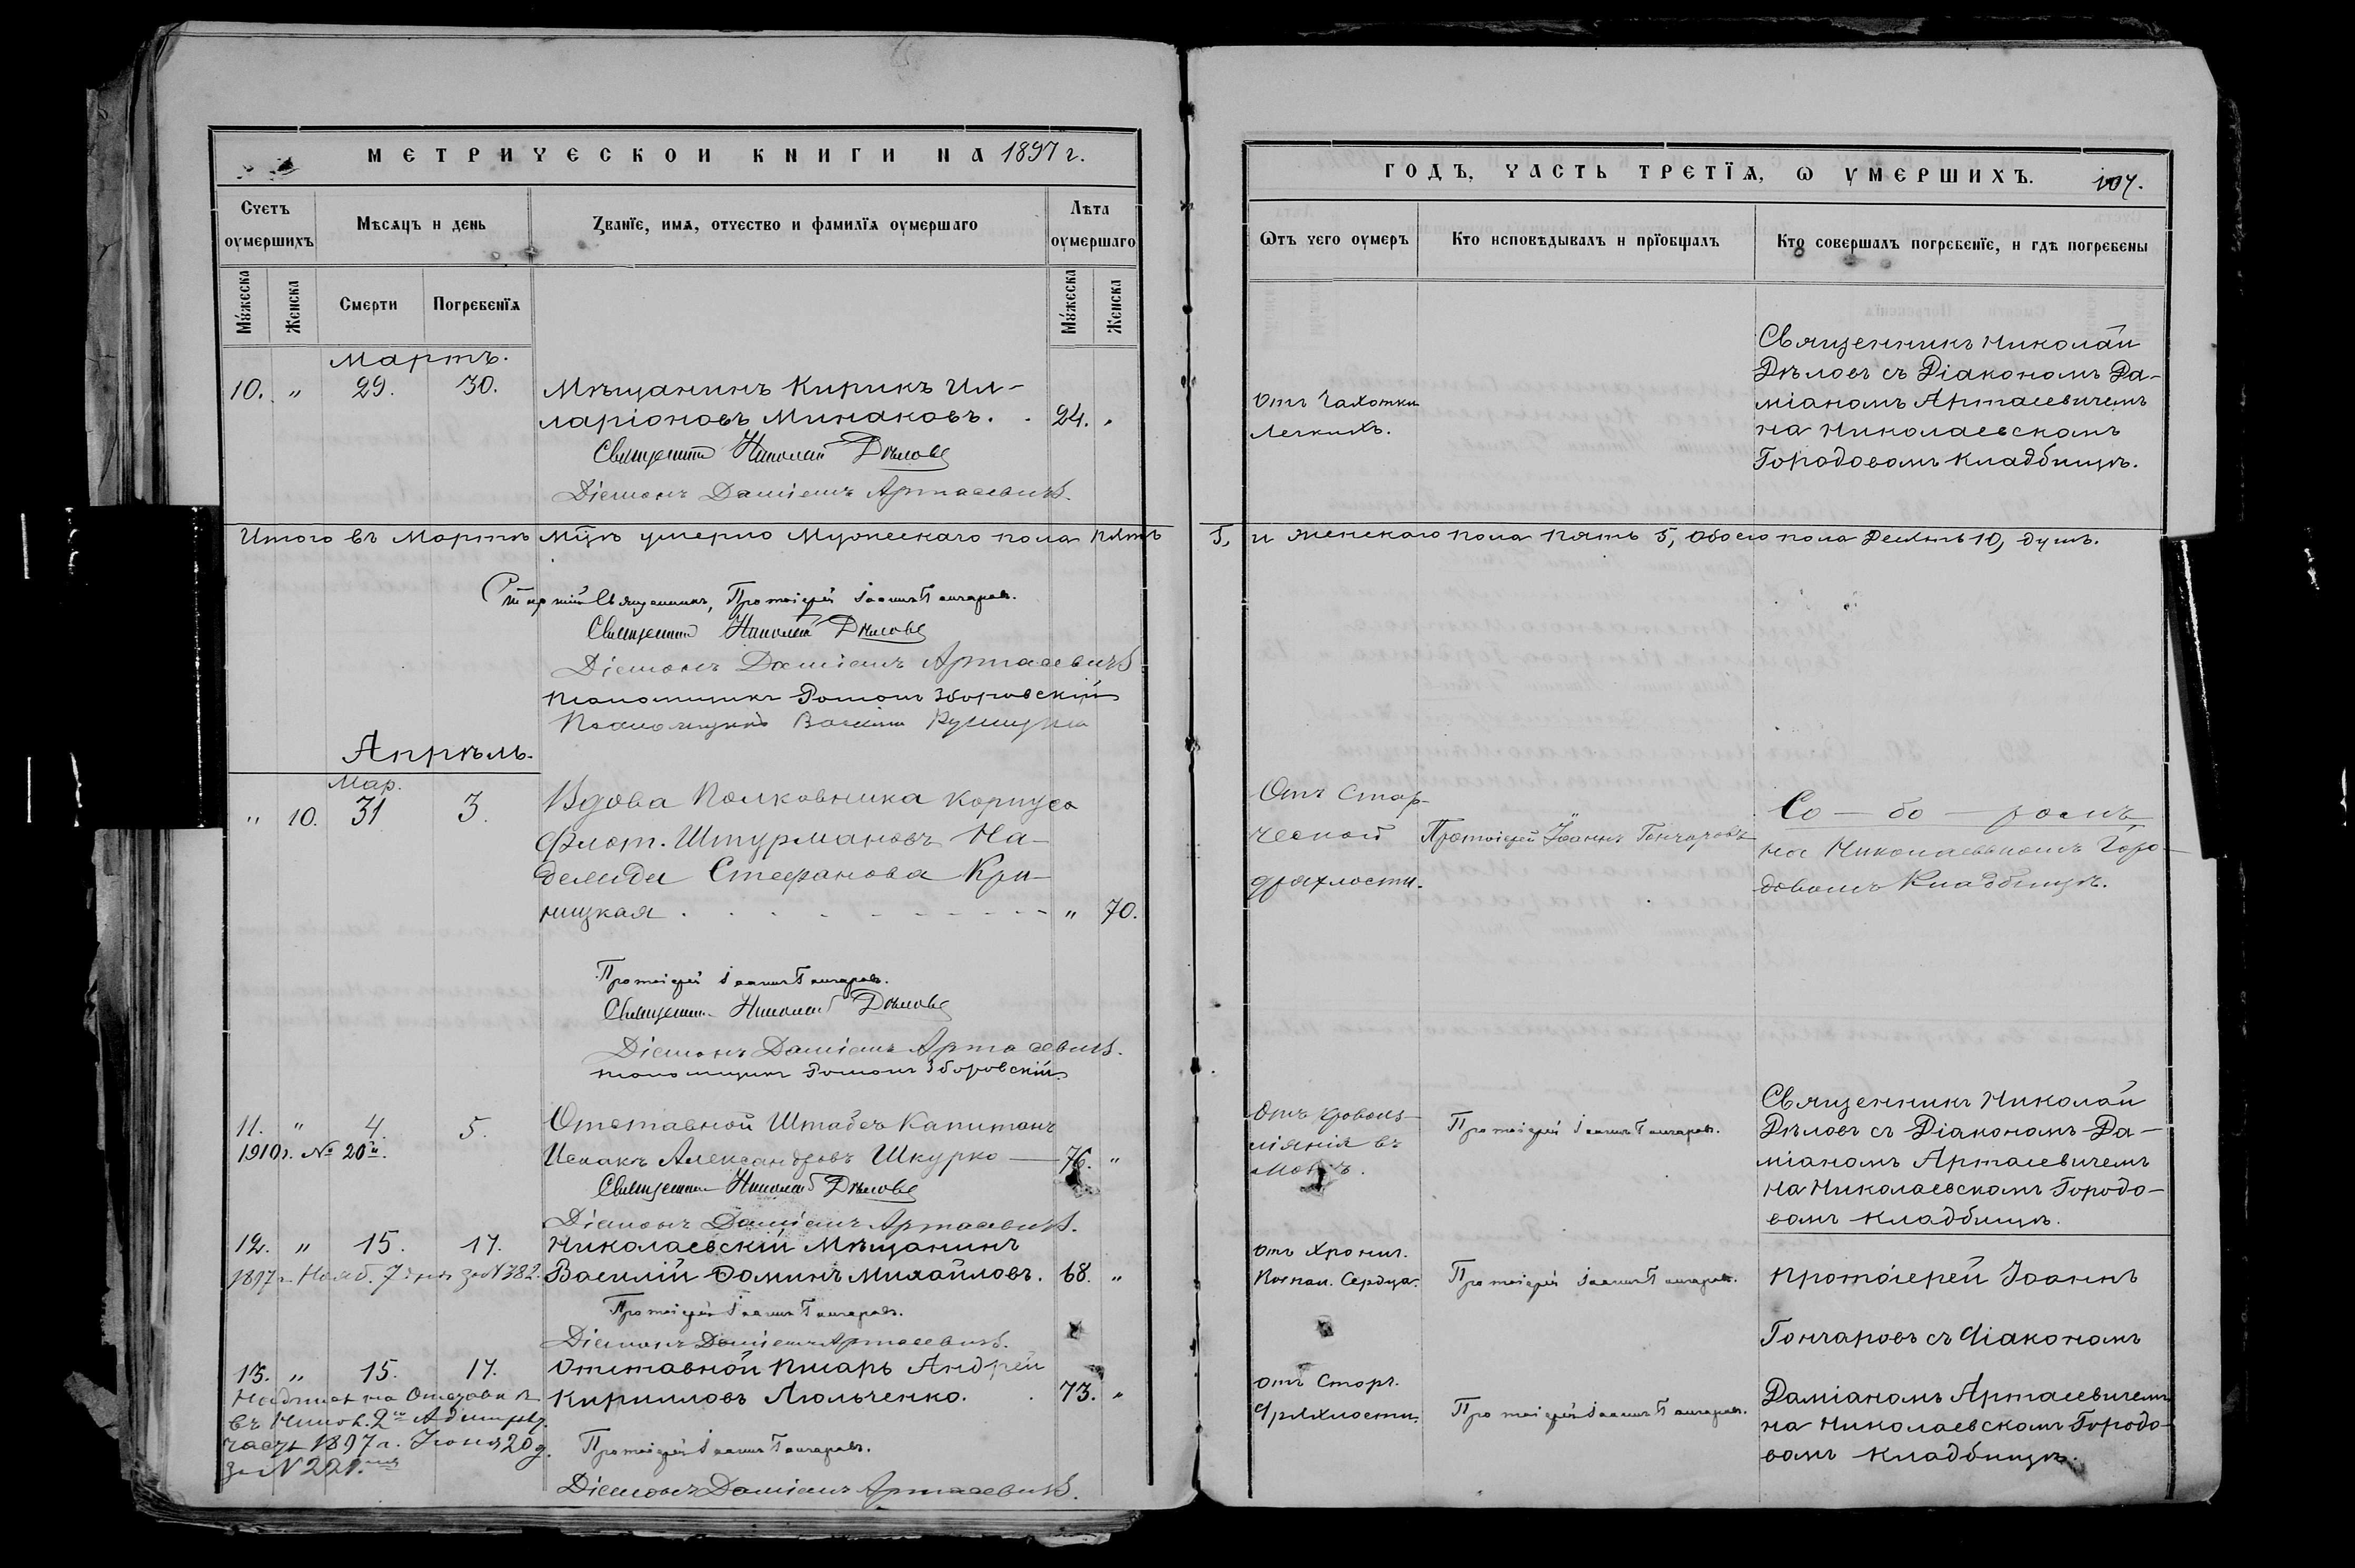 МЕТРИЧЕСКОЙ КНИГИ НА 1897 г.
Счетъ оумершихъ
Мѣсяцъ и день
Званїе, имя, отчество и фамилїя оумершаго
Лѣта оумершаго
Мужеска
Женска
Смерти
Погребенїя
Мужеска
Женска
Мартъ.
10. " 29. 30. Мѣщанинъ Кирикъ Ил-
ларіоновъ Минаковъ. . 24. "
Священникъ Николай Дѣловъ
Діаконъ Даміанъ Артасевичъ.
Итого въ Мартѣ мцѣ умерло Мужескаго пола пять
Старшій Священникъ, Протоіерей Іоаннъ Гончаровъ.
Священникъ Николай Дѣловъ
Діаконъ Даміанъ Артасевичъ
Псаломщикъ Романъ Зборовскій
Псаломщикъ
Апрѣль.
Мар.
" 10. 31 3. Вдова Полковника Корпуса
Флот. Штурмановъ На-
дежда Стефанова Кри-
ницкая . . . " 70.
Протоіерей Іоаннъ Гончаровъ.
Священникъ Николай Дѣловъ
Діаконъ Даміанъ Артасевичъ.
Псаломщикъ Романъ Зборовскій
11. " 4. 5. Отставной Штабсъ Капитанъ
1910 г. № 20й. Исаакъ Александровъ Шкурко — 76. "
Священникъ Николай Дѣловъ
Діаконъ Даміанъ Артасевичъ.
12. " 15. 17. Николаевскій Мѣщанинъ
1897 г. Нояб. 7 дня за № 382. Василій Фоминъ Михайловъ. 68. "
Протоіерей Іоаннъ Гончаровъ.
Діаконъ Даміанъ Артасевичъ.
13. " 15. 17. Отставной Писарь Андрей
Кирилловъ Люльченко. . 73. "
въ Никол. 2ю Адмир.
часть 1897 г. Іюня 20 д.
за № 221.
Протоіерей Іоаннъ Гончаровъ.
Діаконъ Даміанъ Артасевичъ.
ГОДЪ, ЧАСТЬ ТРЕТЇЯ, Ѡ УМЕРШИХЪ. 107.
Ѿтъ чего оумеръ
Кто исповѣдывалъ и прїобщалъ
Кто совершалъ погребенїе, и гдѣ погребены
Священникъ Николай
Дѣловъ съ Діакономъ Да-
міаномъ Артасевичемъ
на Николаевскомъ
Городовомъ кладбищѣ.
Отъ Чахотки
Легкихъ.
5, и женскаго пола пять 5, обоего пола десять 10, душъ.
Отъ Стар-
ческой
дряхлости.
Протоіерей Іоаннъ Гончаровъ
Со — бо — ромъ
на Николаевскомъ Горо-
довомъ Кладбищѣ.
Отъ кровоиз-
ліянія въ
мозгъ.
Протоіерей Іоаннъ Гончаровъ.
Священникъ Николай
Дѣловъ съ Діакономъ Да-
міаномъ Артасевичемъ
на Николаевскомъ Городо-
вомъ кладбищѣ.
Отъ Хронич.
Сердца.
Протоіерей Іоаннъ Гончаровъ.
Протоіерей Іоаннъ
Гончаровъ съ Діакономъ
Отъ Старч.
Дряхлости.
Протоіерей Іоаннъ Гончаровъ.
Даміаномъ Артасевичемъ
на Николаевскомъ Городо-
вомъ кладбищѣ.